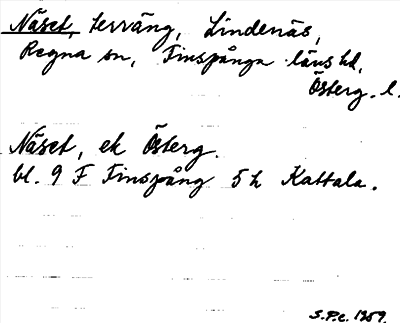 Näset, terräng, Lindenäs,
Regna sn, Finspånga läns hd,
Österg. l.
Näset, ek Österg.
bl. 9 F Finspång 5 h Kattala.
S.P.c. 1959.